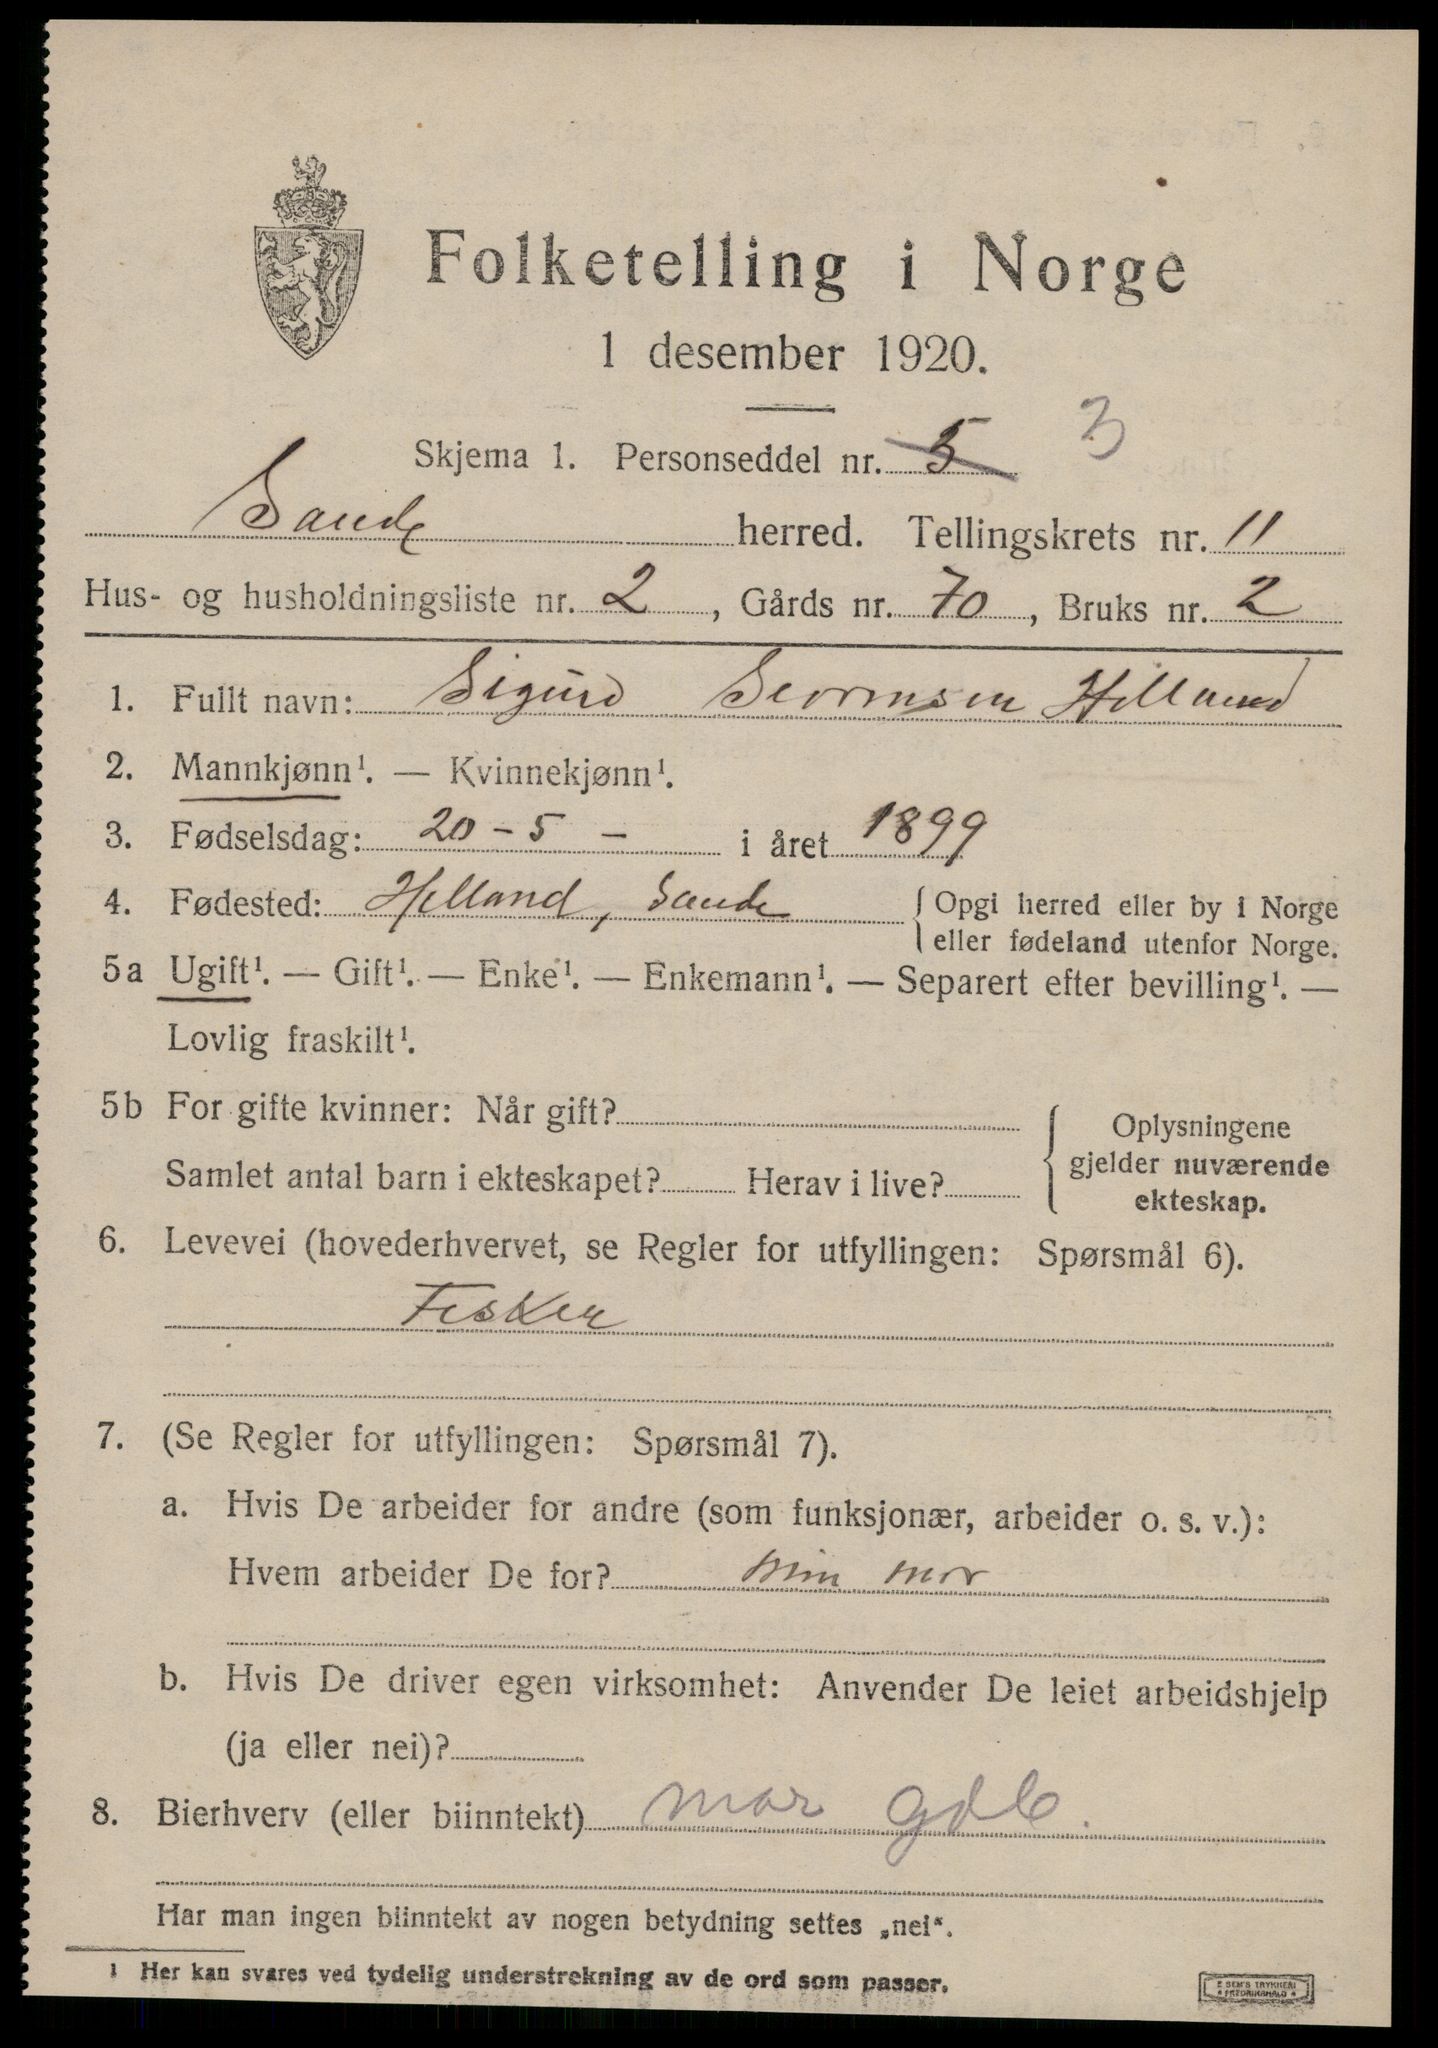 Folketelling i Norge
1 desember 1920.
Skjema 1. Personseddel nr. 5 3
Sande herred. Tellingskrets nr. 11
Hus- og husholdningsliste nr. 2, Gårds nr. 70, Bruks nr. 2
1. Fullt navn: Sigurd Severinsen Helland
2. Mannkjønn¹. — Kvinnekjønn¹.
3. Fødselsdag: 20 - 5 - i året 1899
4. Fødested: Helland, Sande { Opgi herred eller by i Norge
eller fødeland utenfor Norge.
5a Ugift¹. — Gift¹. — Enke¹. — Enkemann¹. — Separert efter bevilling¹. —
Lovlig fraskilt¹.
5b For gifte kvinner: Når gift?
Samlet antal barn i ekteskapet? Herav i live?
Oplysningene
gjelder nuværende
ekteskap.
6. Levevei (hovederhvervet, se Regler for utfyllingen: Spørsmål 6).
Fisker
7. (Se Regler for utfyllingen: Spørsmål 7).
a. Hvis De arbeider for andre (som funksjonær, arbeider o. s. v.):
Hvem arbeider De for? min mor
b. Hvis De driver egen virksomhet: Anvender De leiet arbeidshjelp
(ja eller nei)?
8. Bierhverv (eller biinntekt) mor gdb.
Har man ingen biinntekt av nogen betydning settes „nei“.
1 Her kan svares ved tydelig understrekning av de ord som passer.
E SEM'S TRYKKERI
FREDRIKSHALD